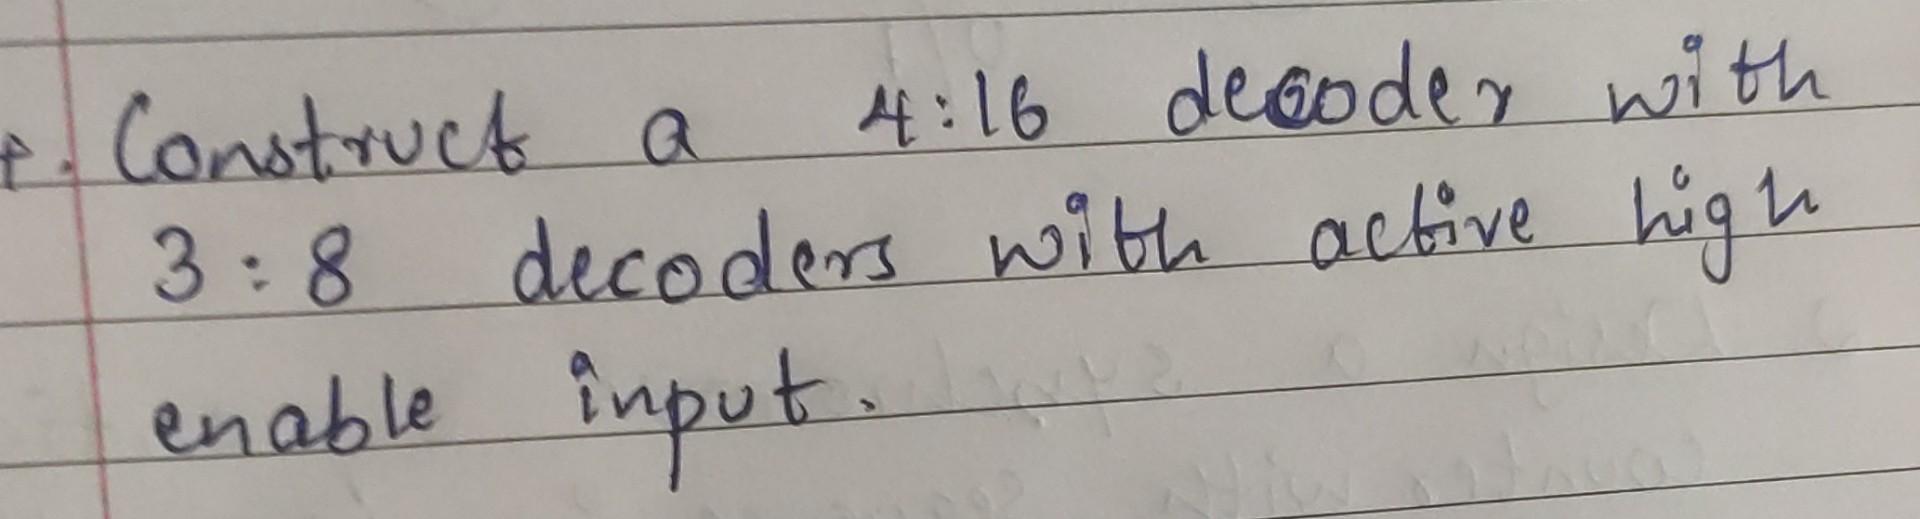 Construct a 4:16 decoder with
3:8 decoders with active high
enable input.